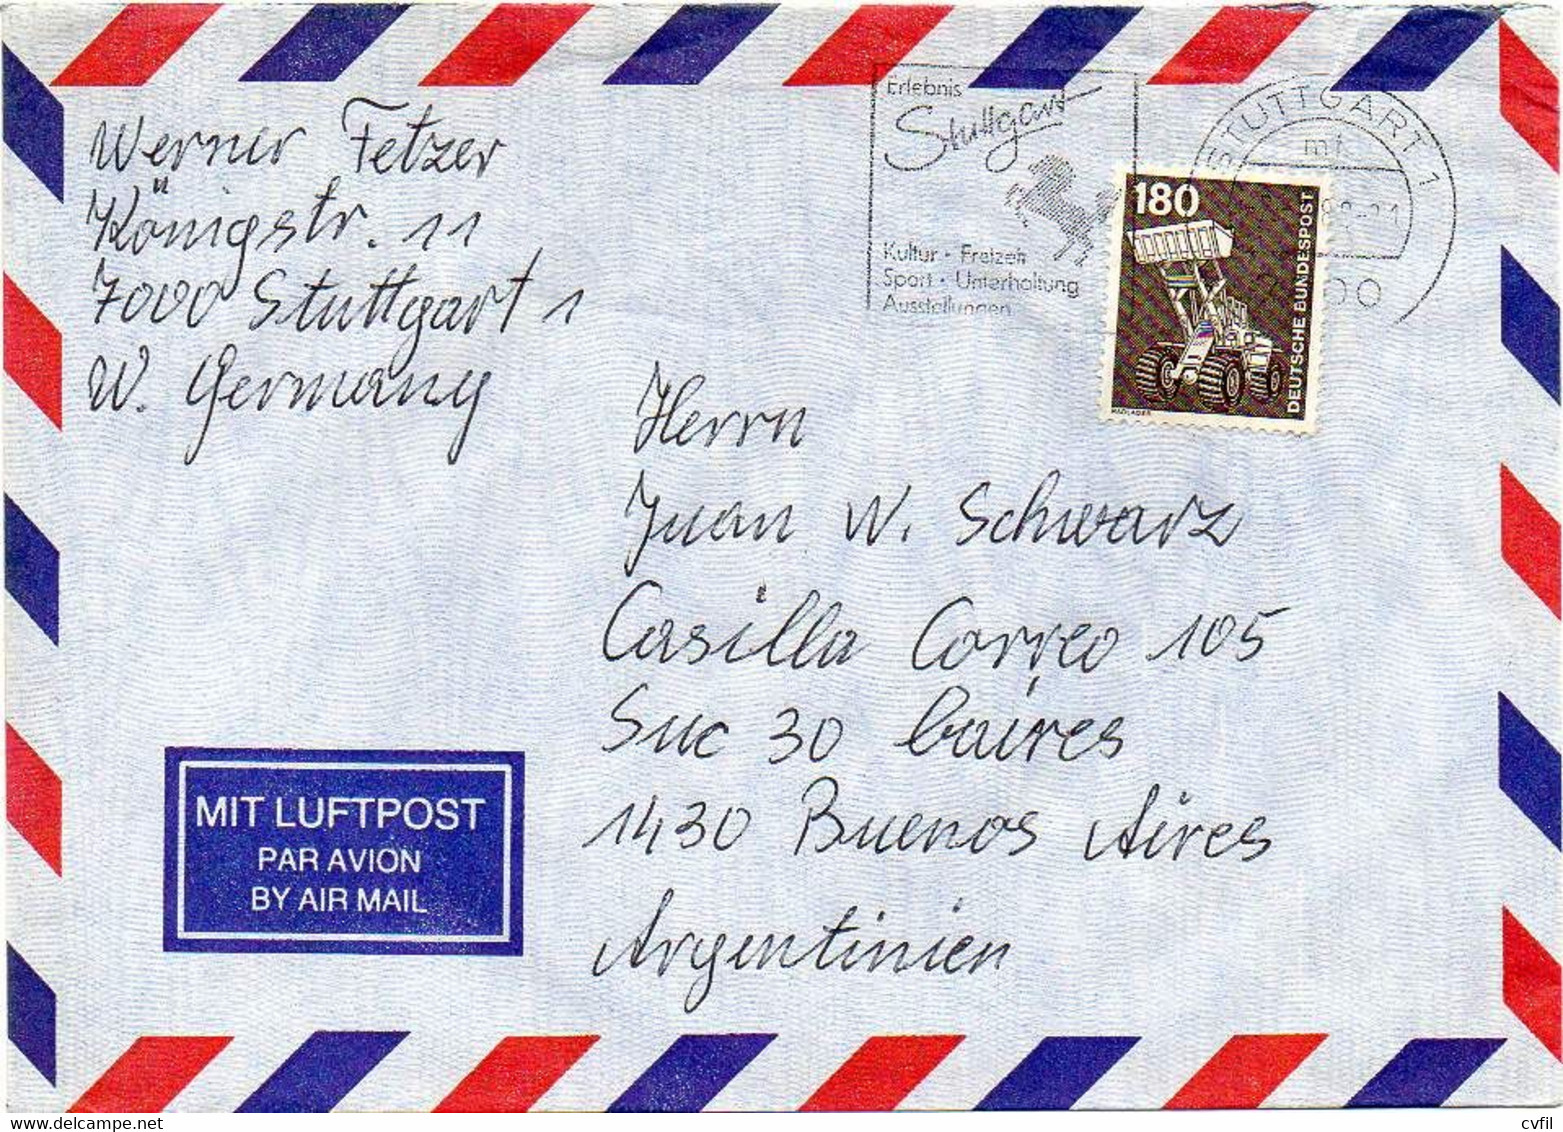 Werner Fetzer
Königstr. 11
7000 Stuttgart 1
W. Germany
Erlebnis
Stuttgart
Kultur · Freizeit
Sport · Unterhaltung
Ausstellungen
STUTTGART 1
180
DEUTSCHE BUNDESPOST
RADLADER
Herrn
Juan W. Schwarz
Casilla Correo 105
Suc 30
1430 Buenos Aires
Argentinien
MIT LUFTPOST
PAR AVION
BY AIR MAIL
cvfil